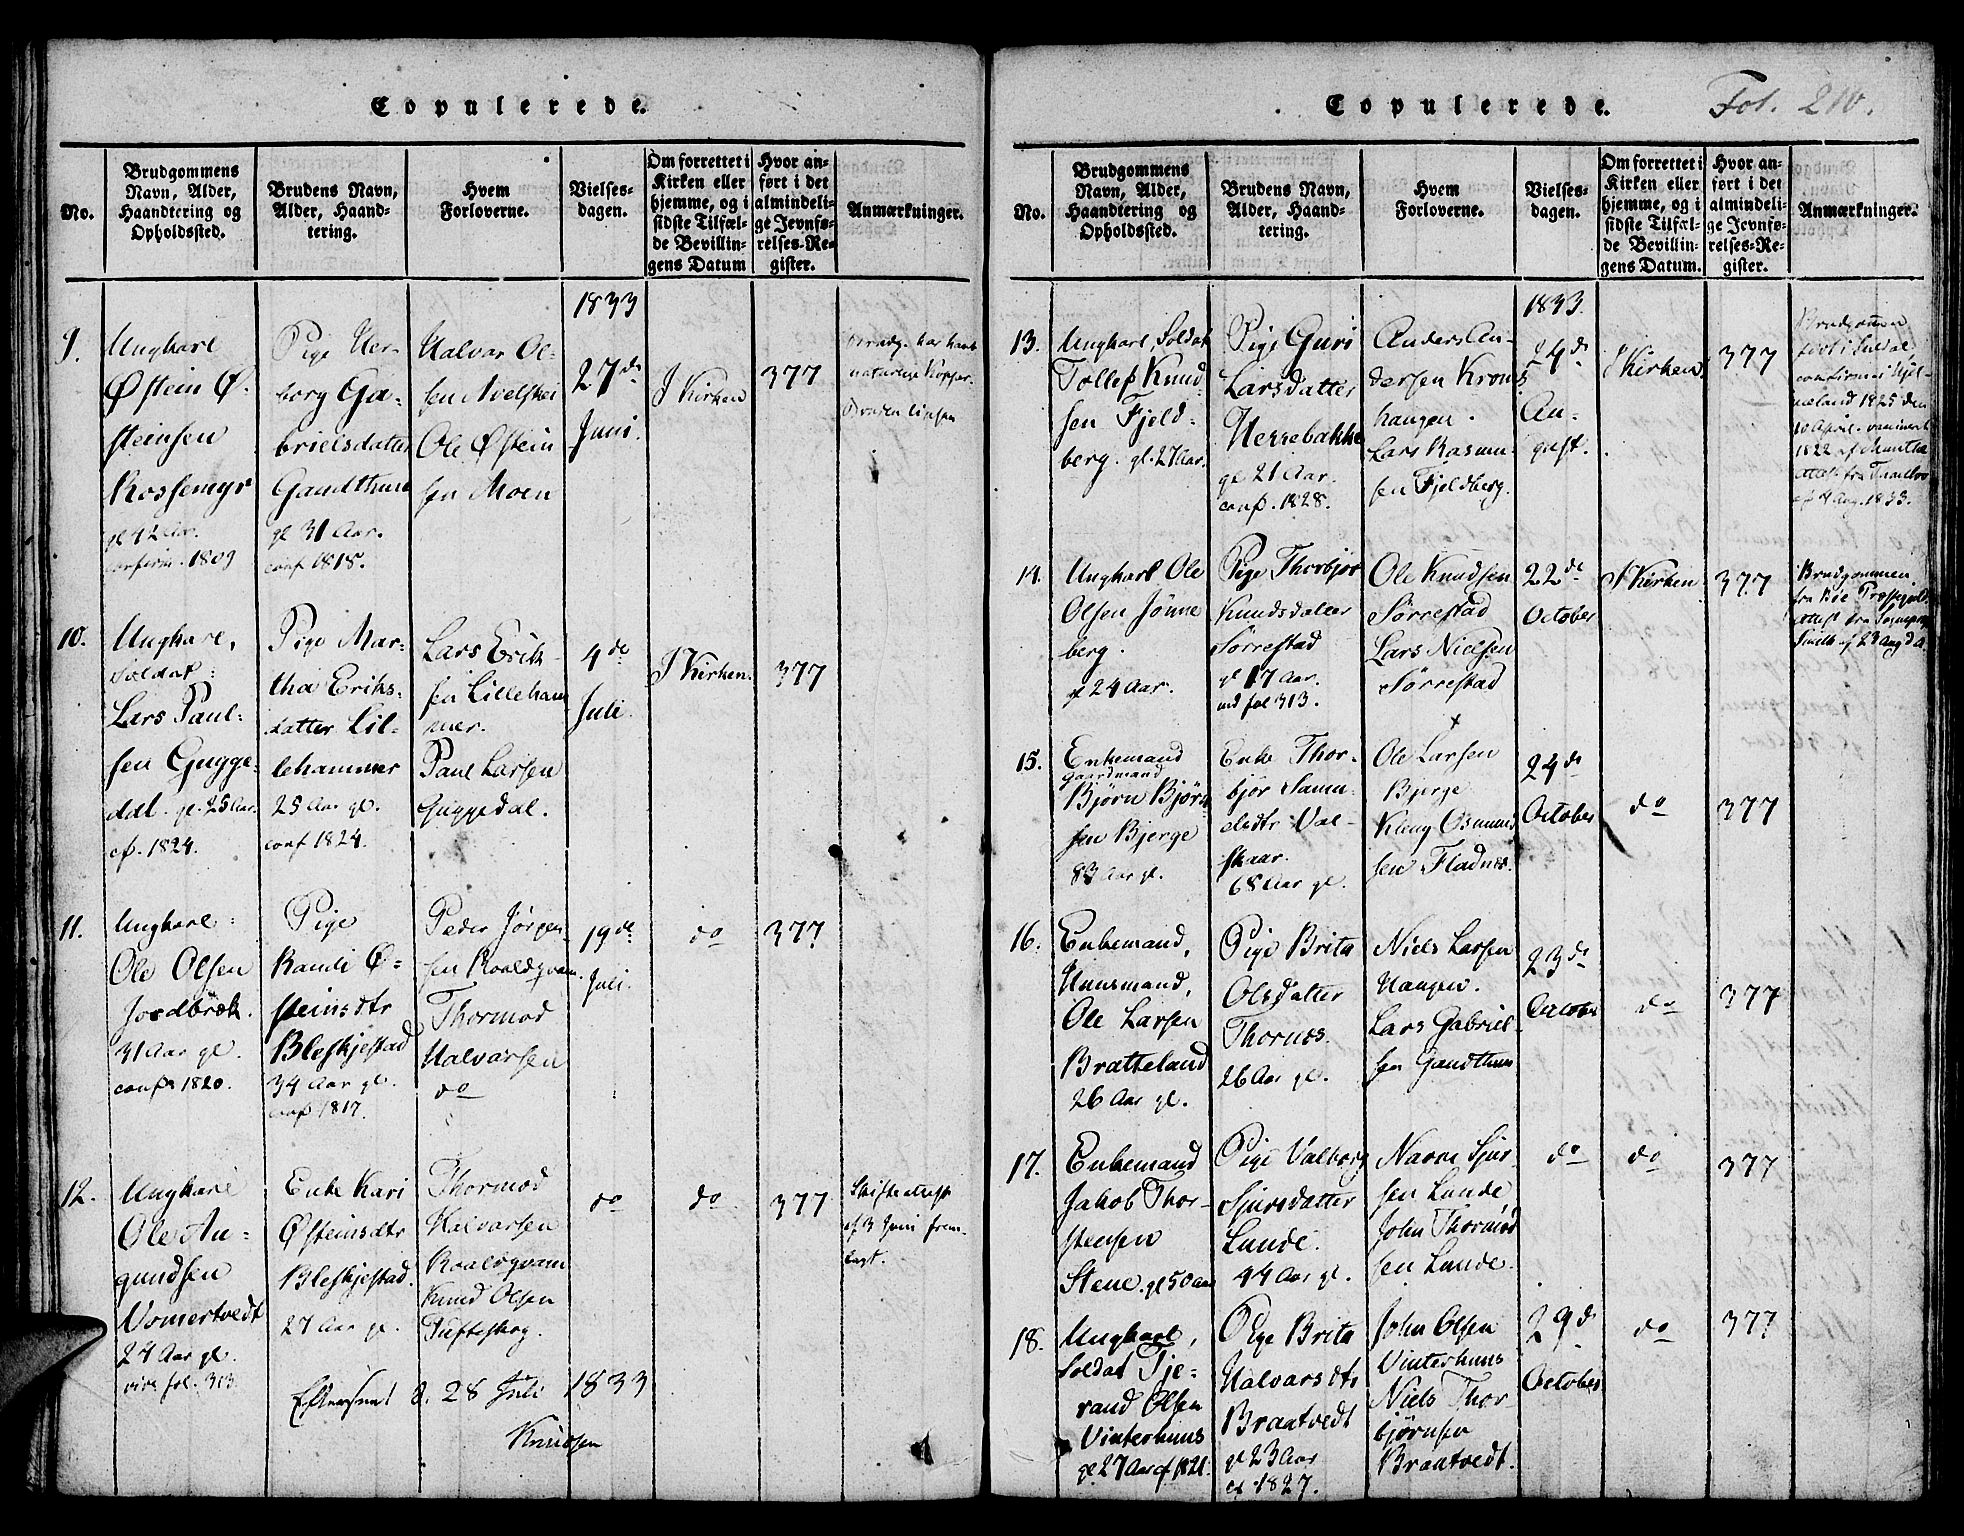 Copulerede.
No.
Brudgommens
Navn, Alder,
Haandtering og
Opholdssted.
Brudens Navn,
Alder, Haand-
tering.
Hvem
Forloverne.
Vielses-
dagen.
Om forrettet i
Kirken eller
hjemme, og i
sidste Tilfæl-
de Bevillin-
gens Datum
Hvor an-
ført i det
almindeli-
ge Jevnfø-
relses-Re-
gister.
Anmærkninger.
1833
9.
Ungkarl
Østein Ø-
steinsen
Rossemyr
gl 42 Aar.
confirm. 1809
Pige Her-
borg Ga-
brielsdatter
Gandthun
gl 31 Aar.
conf 1818.
Halvar Ol-
sen
Ole Østein
sen Moen
27de
Juni.
I Kirken
377
Brudg. har havt
naturlige Kopper.
Bruden
10.
Ungkarl,
Soldat:
Lars Paul-
sen Gugge-
dal. gl. 25 Aar.
cf. 1824.
Pige Mar-
tha Eriks-
datter Lil-
lehammer
25 Aar gl.
conf 1824.
Lars Erik-
sen Lilleham
mer.
Paul Larsen
Guggedal.
4de
Juli.
I Kirken.
377
11.
Ungkarl:
Ole Olsen
Jordbræk.
31 Aar gl.
conf. 1820.
Pige
Randi Ø-
steinsdtr
Bleskjestad
34 Aar gl.
conf 1817.
Peder Jørgen-
sen Roaldqvam.
Thormod
Halvarsen
do
19de
Juli.
do
377
12.
Ungkarl
Ole Au-
gundsen
Vomertvedt
24 Aar gl.
vide fol. 313.
Enke Kari
Østeinsdtr
Bleskjestad.
27 Aar gl.
Thormod
Halvarsen
Roaldqvam
Knud Olsen
Tufteskog.
do
do
377
Skifteattest
af 3 Juni frem-
lagt.
Efterseet d. 28 Juli 1833
Knudsen
Copulerede.
Fol. 210.
No.
Brudgommens
Navn, Alder,
Haandtering og
Opholdssted.
Brudens Navn,
Alder, Haand-
tering.
Hvem
Forloverne.
Vielses-
dagen.
Om forrettet i
Kirken eller
hjemme, og i
sidste Tilfæl-
de Bevillin-
gens Datum.
Hvor an-
ført i det
almindeli-
ge Jevnfø-
relses-Re-
gister.
Anmærkninger.
1833.
13.
Ungkarl Soldat
Tollef Knud-
sen Fjeld-
berg. gl. 27 Aar.
Pige Guri
Larsdatter
Herrebakke
gl 21 Aar.
conf. 1828.
Anders An-
dersen Krons
haugen.
Lars Rasmu-
sen Fjeldberg.
24de
Au-
gust.
I Kirken.
377
Brudgommen
født i Suldal
confirm. i Hjel-
meland 1825 den
10 April. vaccineret
1822 af Munthe
attest fra
af 4 Aug. 1833.
14.
Ungkarl Ole
Olsen Jønne
berg.
gl 24 Aar.
Pige Thorbjør
Knudsdatter
Sørrestad
gl 17 Aar.
vid fol 313.
Ole Knudsen
Sørrestad
Lars Nielsen
Sørrestad
22de
October
I Kirken
377
Brudgommen
fra Bøe Præstegield
attest fra Sognepr.
Smith af 23 Aug d. A.
15.
Enkemand
Gaardmand
Bjørn Bjørn
sen Bjerge
83 Aar gl.
Enke Thor-
bjør Samu-
elsdtr Val-
skaar.
68 Aar gl.
Ole Larsen
Bjerge
Klaug Osmund
sen Fladnes.
24de
October
do
377
16.
Enkemand,
Huusmand,
Ole Larsen
Bratteland
26 Aar gl.
Pige Brita
Olsdatter
Thornes.
26 Aar gl.
Niels Larsen
Haugen.
Lars Gabriel-
sen Gandthun
23de
October
do
377
17.
Enkemand
Jakob Thor-
stensen
Stene. gl 50 aar
Pige Valborg
Sjursdatter
Lunde.
44 Aar gl.
Narve Sjur-
sen Lunde
John Thormod
sen Lunde.
do
do
377
18.
Ungkarl,
Soldat Tje-
rand Olsen
Vinterhuus
gl 27 Aar cf 1821.
Pige Brita
Halvarsdtr
Braatvedt
gl 23 Aar
cf 1827.
John Olsen
Vinterhuus
Niels Thor
bjørnsen
Braatvedt.
29de
October
do
377